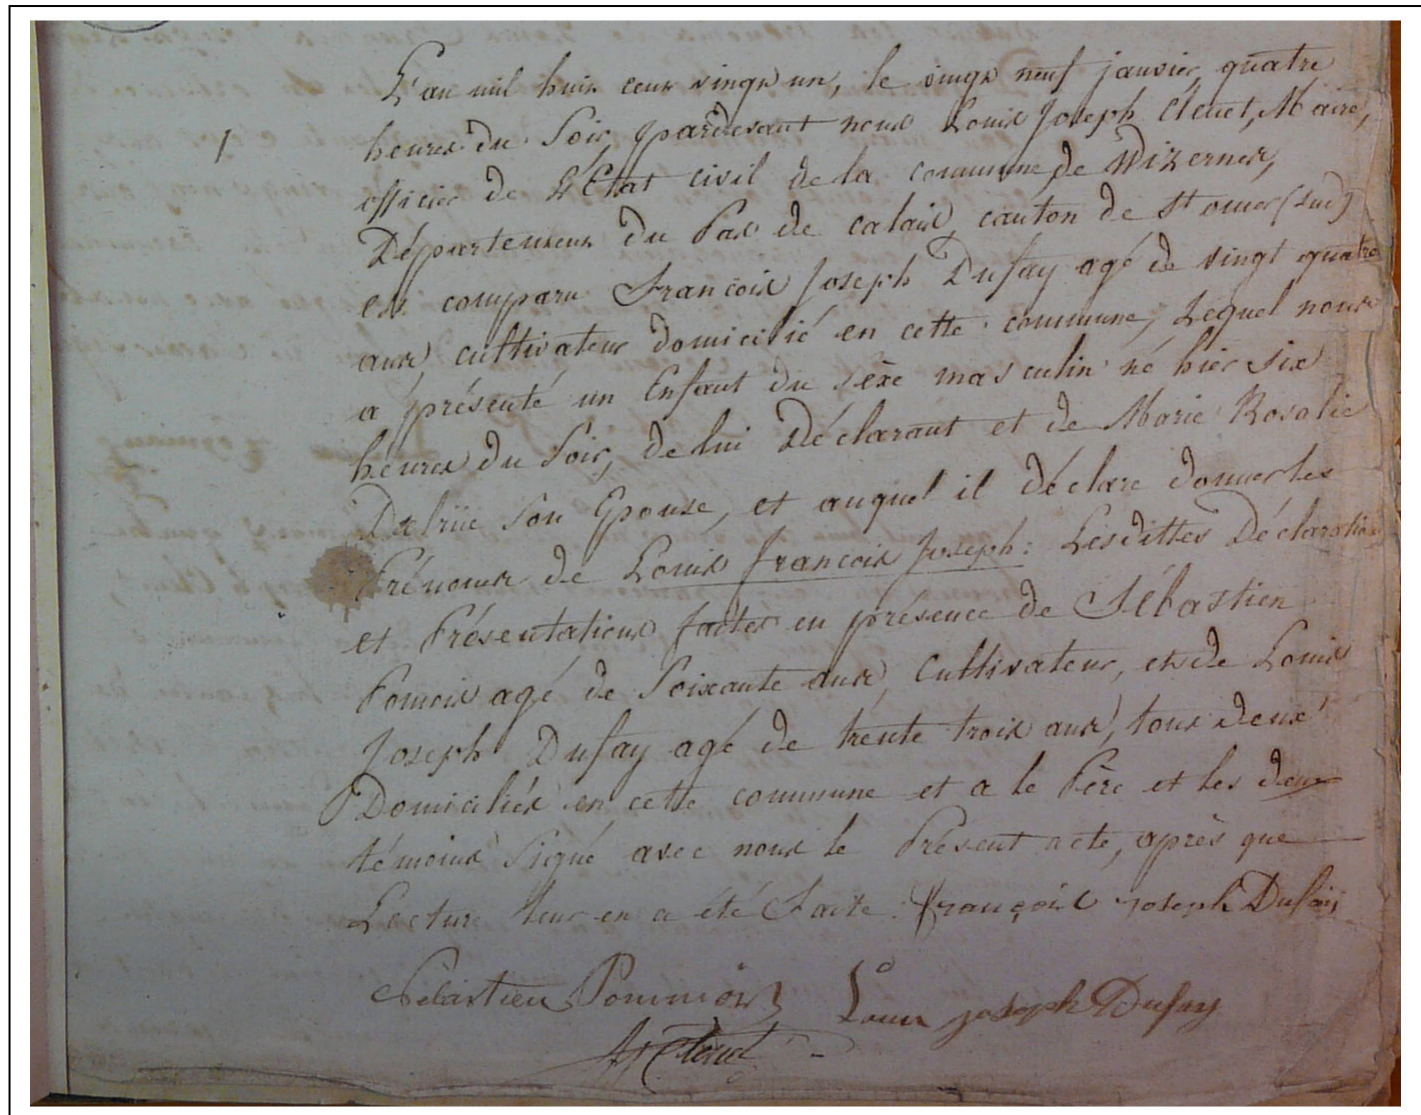 L'an mil huit cent vingt un, le vingt neuf janvier, quatre
heures du Soir, pardevant nous Louis Joseph Cleuet, Maire,
officier de L'Etat civil de la commune de Wizernes,
Département du Pas de calais, canton de St omer (sud)
est comparu François Joseph Dufay agé de vingt quatre
ans, cultivateur domicilié en cette commune, Lequel nous
a présenté un Enfant du sèxe masculin né hier six
heures du Soir, de lui Déclarant et de Marie Rosalie
Delrüe Son Epouse, et auquel il déclare donner les
Prénoms de Louis françois Joseph : Lesdittes Déclaration
et Présentations faites en présence de Sébastien
Pomois agé de Soixante ans, Cultivateur, et de Louis
Joseph Dufay agé de trente trois ans, tous deux
Domiciliés en cette commune et a le Père et les deux
témoins Signé avec nous le Présent acte, après que
Lecture leur en a été faite. françois joseph Dufaij
Sébastien Pommois Louis joseph Dufay
Cleuet